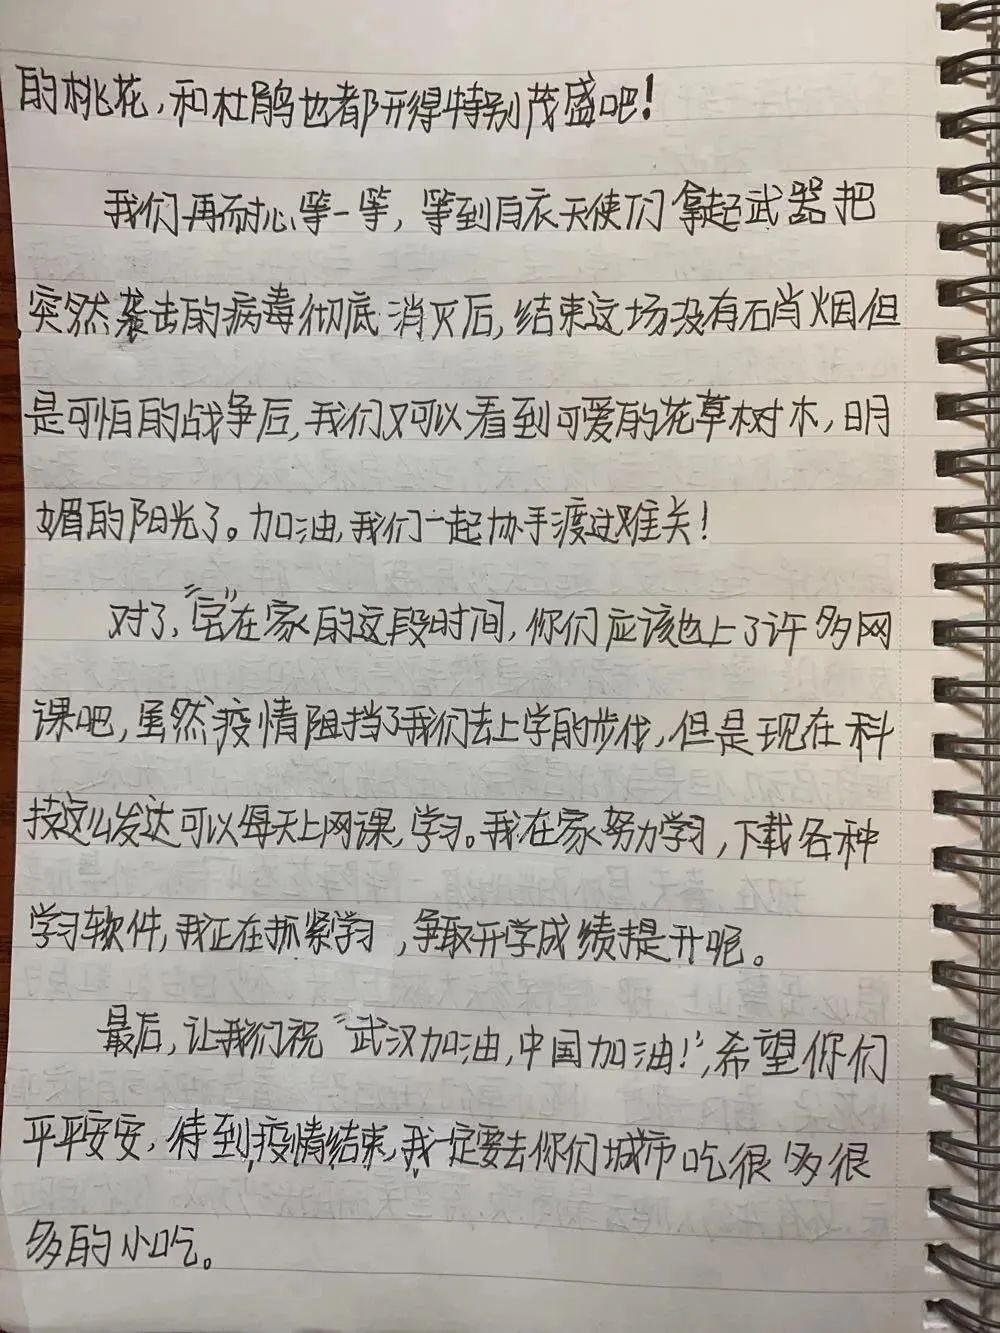 的桃花，和杜鹃也都开得特别茂盛吧！
我们再耐心等一等，等到白衣天使们拿起武器把
突然袭击的病毒彻底消灭后，结束这场没有硝烟但
是可怕的战争后，我们又可以看到可爱的花草树木，明
媚的阳光了。加油，我们一起协手渡过难关！
对了，“宅”在家的这段时间，你们应该也上了许多网
课吧，虽然疫情阻挡了我们去上学的步伐，但是现在科
技这么发达可以每天上网课，学习。我在家努力学习，下载各种
学习软件，我正在抓紧学习，争取开学成绩提升呢。
最后，让我们祝“武汉加油，中国加油！”，希望你们
平平安安，待到疫情结束，我一定要去你们城市吃很多很
多的小吃。